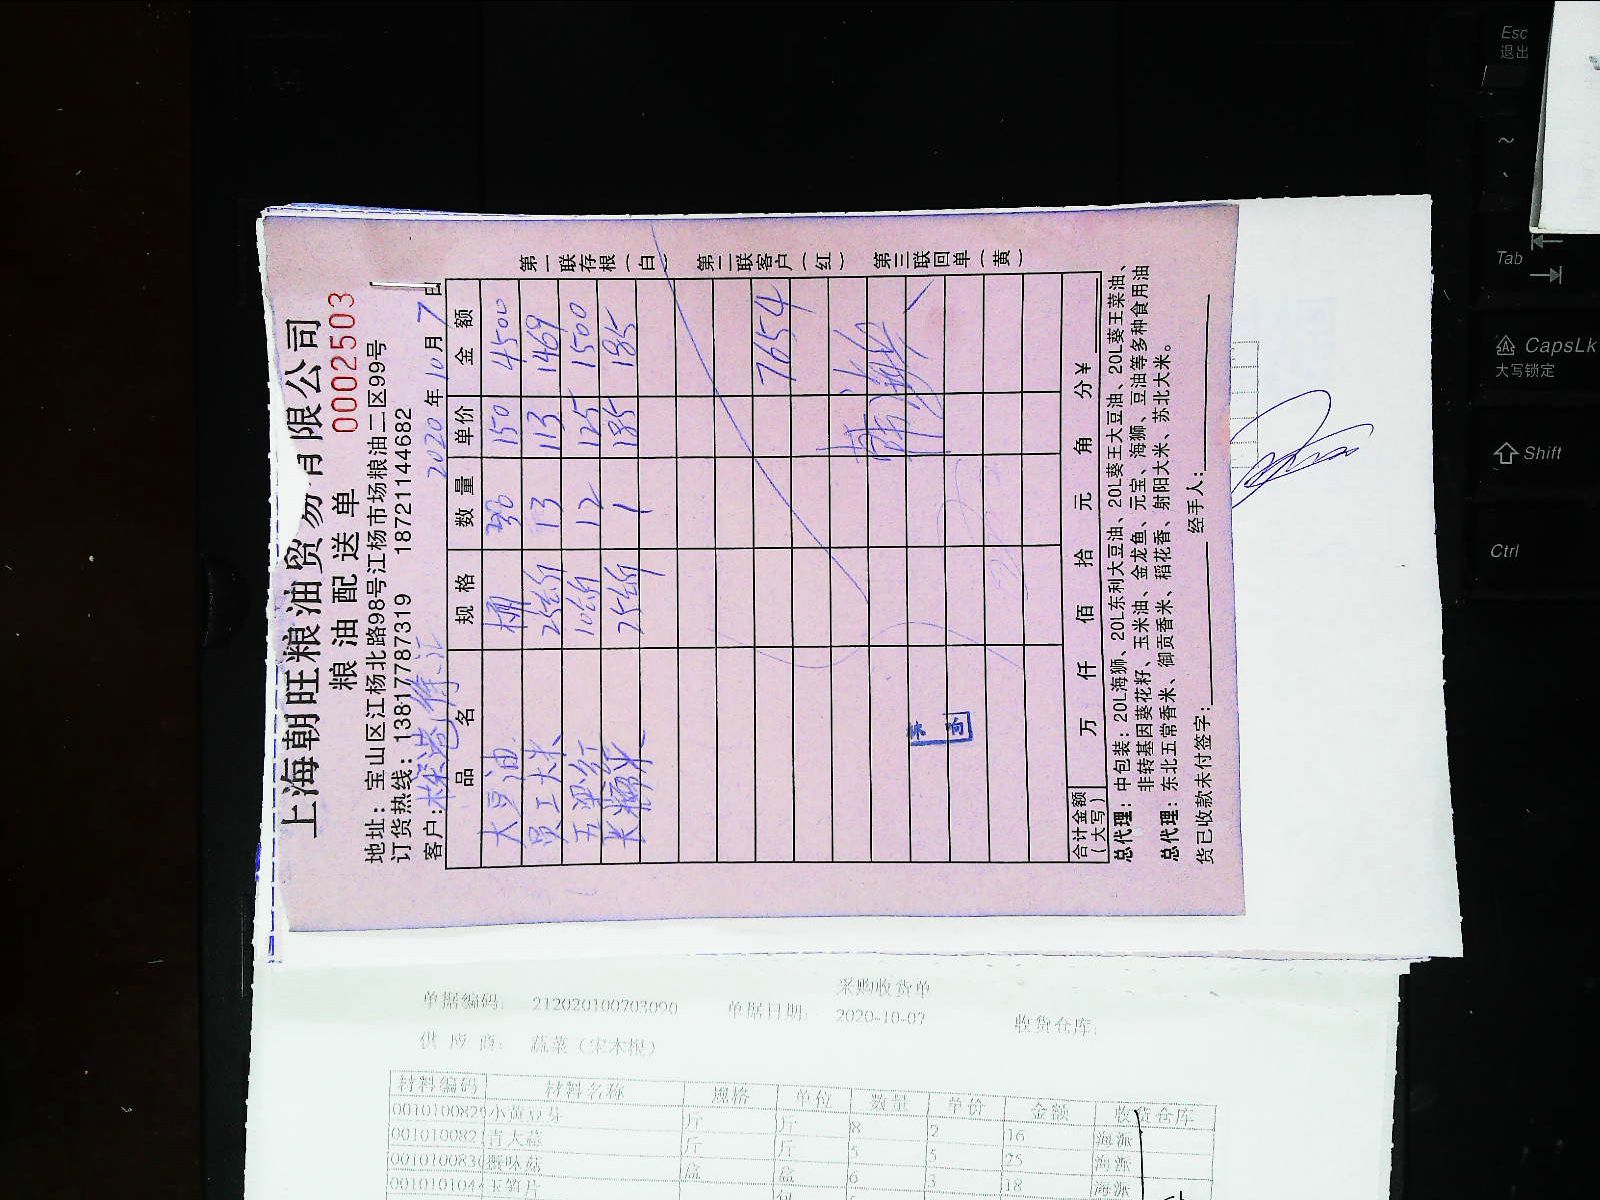 上海朝旺粮油贸易有限公司
粮油配送单 0002503
地址：宝山区江杨北路98号江杨市场粮油二区99号
订货热线：13817787319 18721144682
客户： 2020年10月7日
品名 规格 数量 单价 金额
大豆油 桶 30 150 4500
员工大米 25公斤 13 113 1469
10公斤 12 125 1500
长糯米 25公斤 1 185 185
7654
合计金额（大写） 万 仟 佰 拾 元 角 分 ¥
总代理：中包装：20L海狮、20L东利大豆油、20L葵王大豆油、20L葵王菜油、
非转基因葵花籽、玉米油、金龙鱼、元宝、海狮、豆油等多种食用油
总代理：东北五常香米、御贡香米、稻花香、射阳大米、苏北大米。
货已收款未付签字： 经手人：
第一联存根（白） 第二联客户（红） 第三联回单（黄）
采购收货单
单据编码： 212020100703090 单据日期： 2020-10-07 收货仓库：
供应商： 蔬菜（宋本根）
材料编码 材料名称 规格 单位 数量 单价 金额 收货仓库
0010100829 小黄豆芽 斤 斤 8 2 16 海派
001010082 青大蒜 斤 斤 5 5 25 海派
001010083 蟹味菇 盒 盒 6 3 18 海派
001010104 玉笋片
Esc
退出
~
Tab
CapsLk
大写锁定
Shift
Ctrl